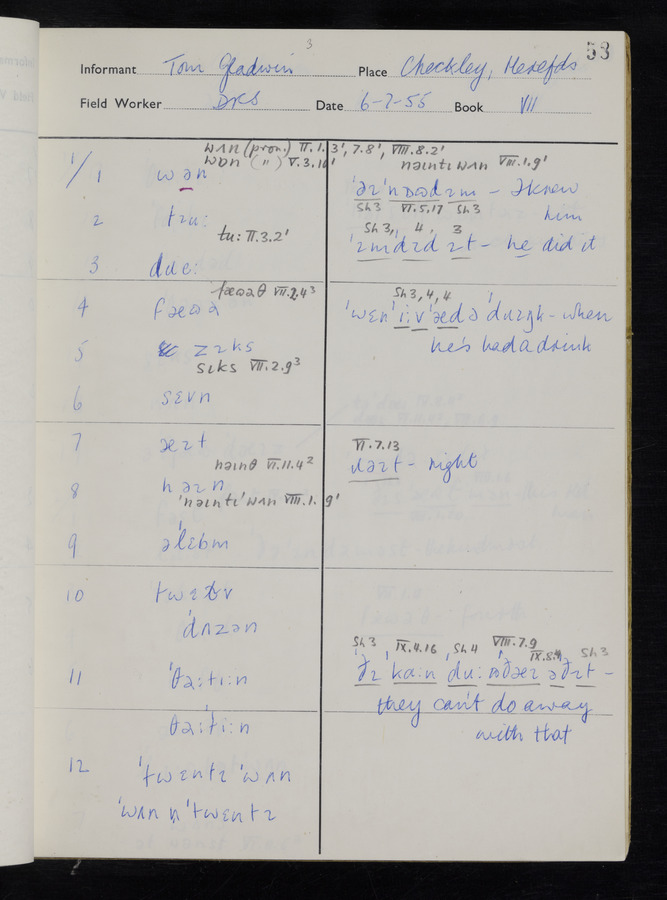 3
53
Informant Tom Gladwin Place Checkley, Herefds
Field Worker DRS Date 6-7-55 Book VII
wʌn (pron.) II.1.3', 7.8', VIII.8.2'
wɒn ( " ) V.3.10'
1/1 wən
2 tɪu:
tu: II.3.2'
3
fæʊəθ VII.2.4³
4 fæʊə
5 zɪks
sɪks VII.2.9³
6 sɛvn
7 əɪt
nəɪnθ VI.11.4²
8 nəɪn
'nəɪntɪ'wʌn VIII.1.9'
9 ə'lɛbm
10
'dʌzən
11 'θə:ti:n
θə:'ti:n
12 'twɛntɪ 'wʌn
'wʌn n̩ 'twɛntɪ
nəɪntɪ wʌn VIII.1.9'
– knew
him
Sh3 VI.5.17 Sh3
Sh3, 4, 3
'ɪmdɪd ɪt – he did it
Sh3, 4, 4
'wɛn 'i:v 'æd ə – when
he's had a drink
VI.7.13
– right
Sh3, IX.4.16, Sh4 VIII.7.9
Sh3
they can't do away
with that